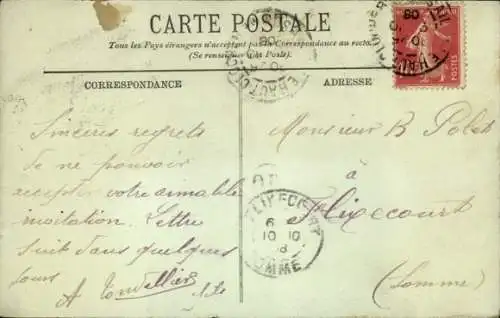 CARTE POSTALE
Tous les Pays étrangers n'acceptent pas la Correspondance au recto
(Se renseigner à la Poste)
CORRESPONDANCE
ADRESSE
Sincères regrets
de ne pouvoir
accepter votre aimable
invitation. Lettre
suit dans quelques
jours
A
Monsieur B
à
Flixecourt
(Somme)
FLIXECOURT
6
10 10
8
SOMME